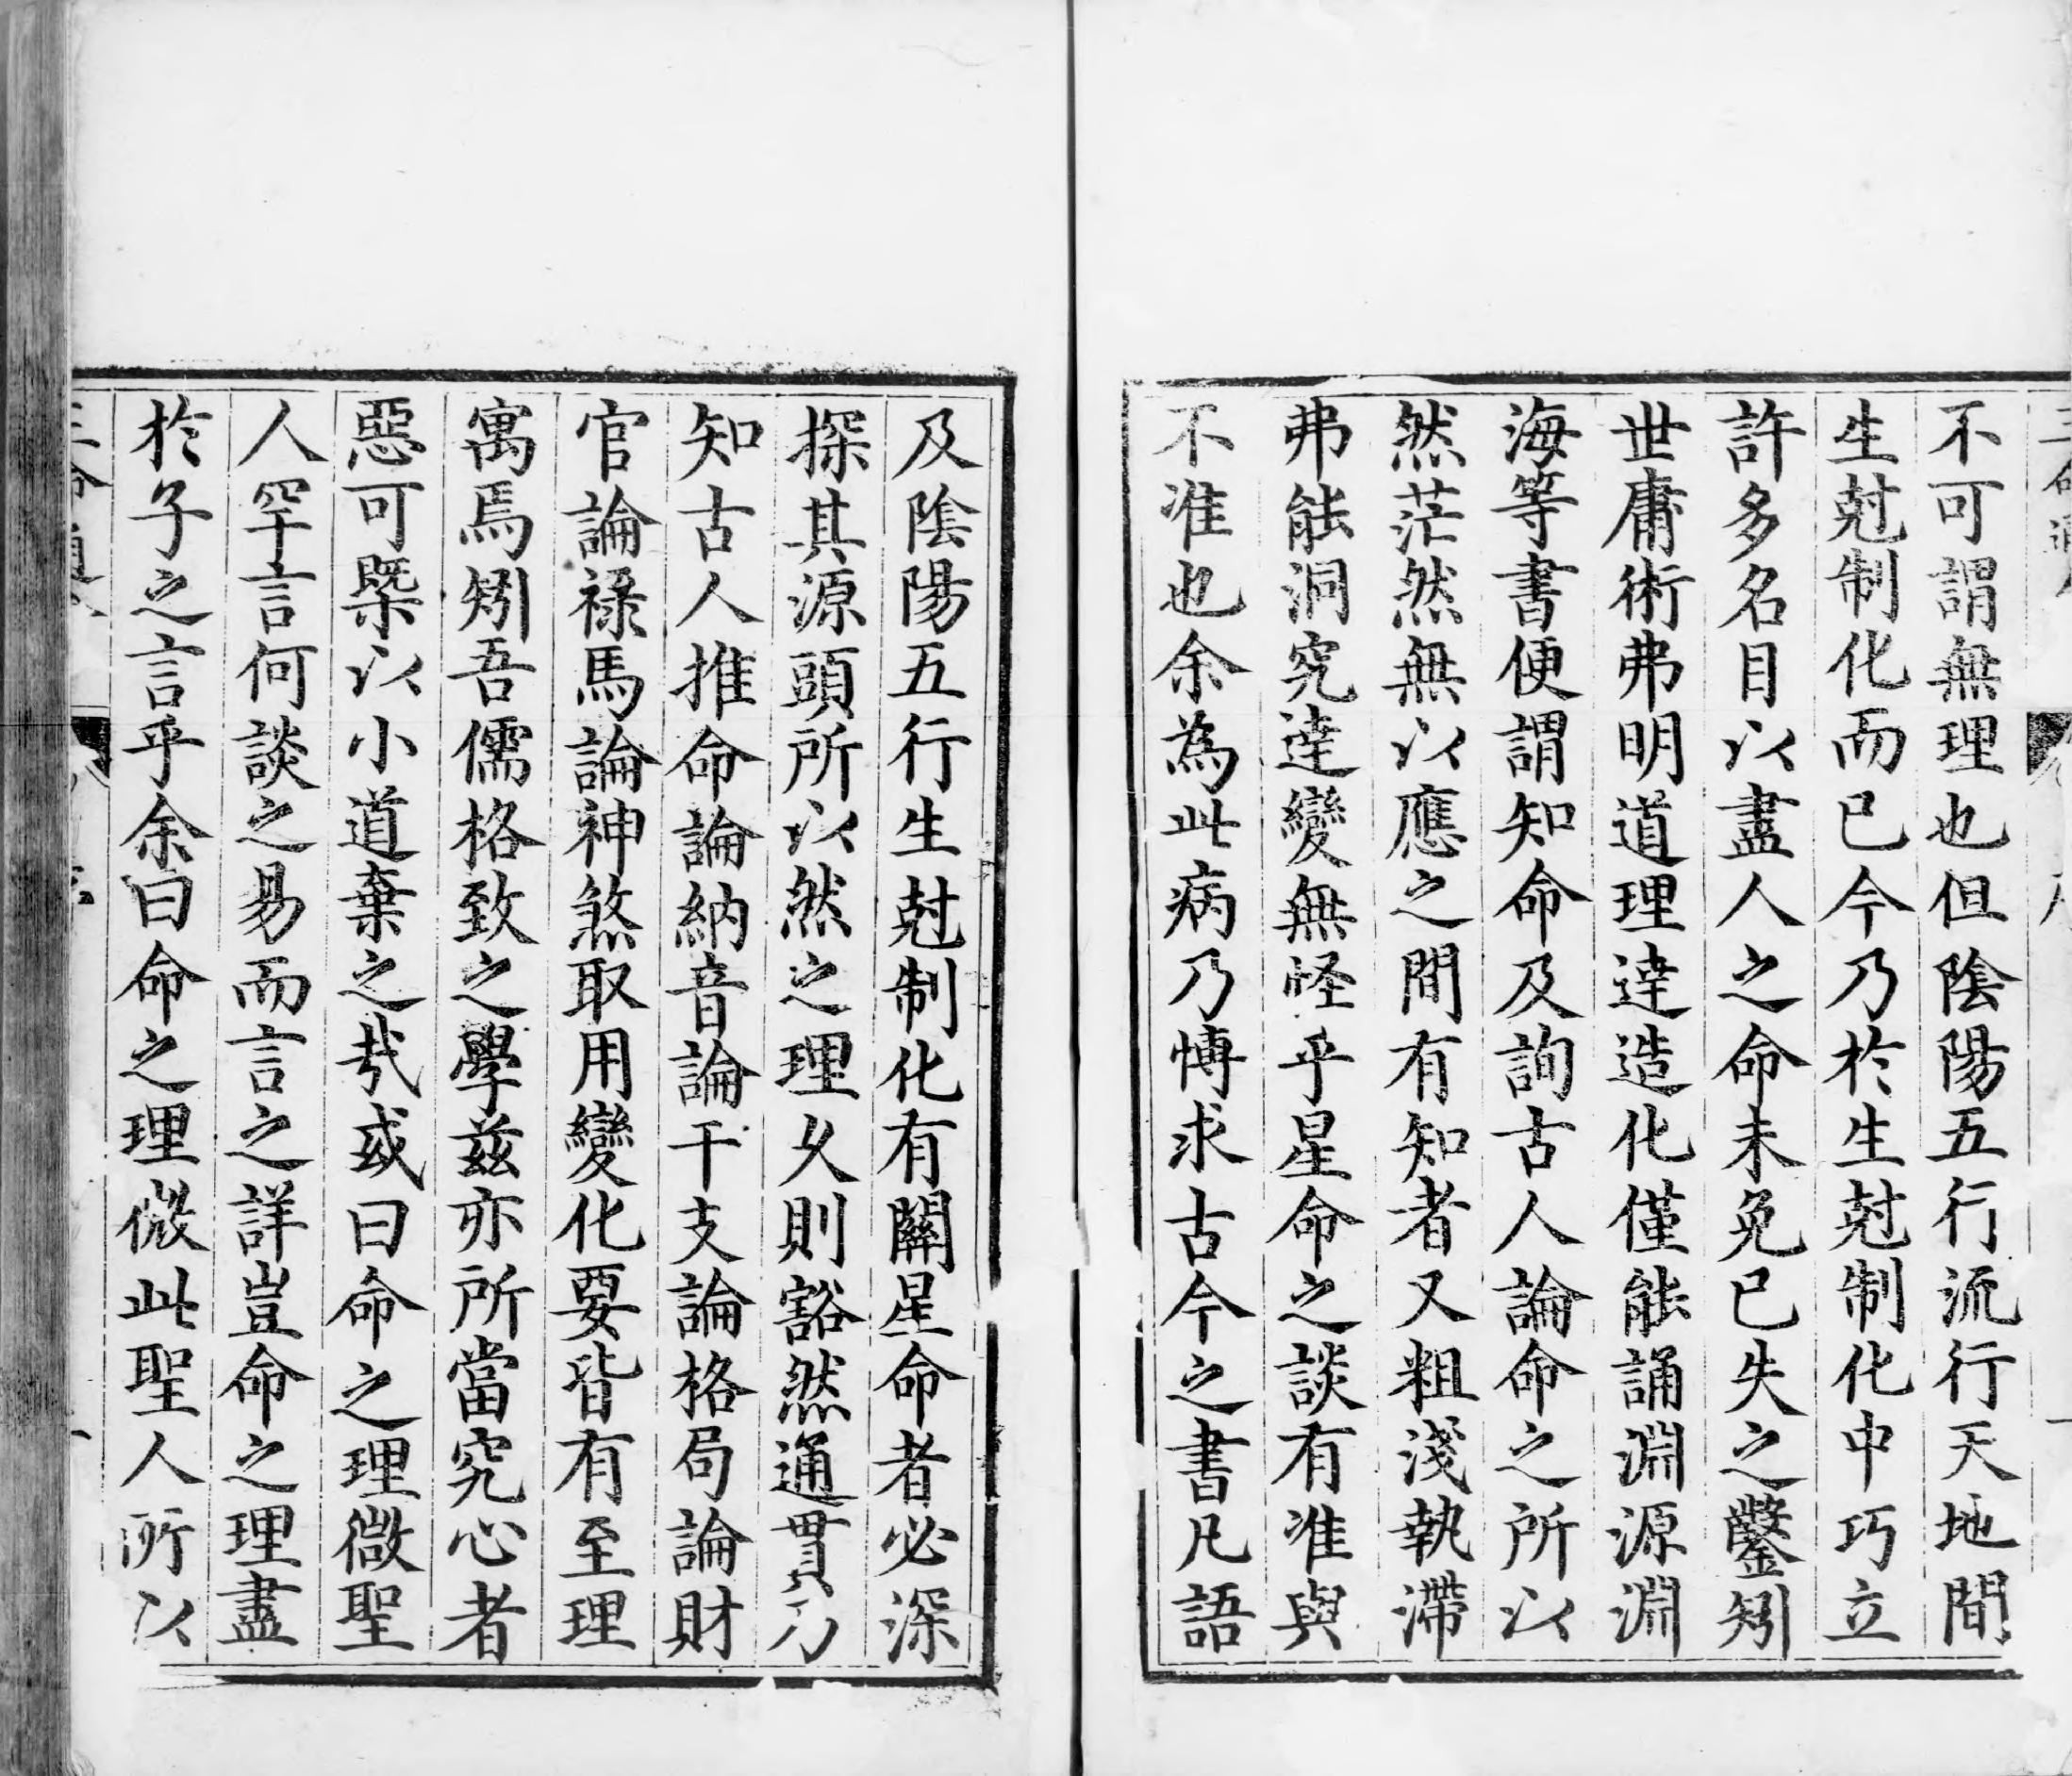 不可謂無理也但陰陽五行流行天地間
生尅制化而已今乃於生尅制化中巧立
許多名目以盡人之命未免已失之鑿矧
世庸術弗明道理逹造化僅能誦淵源淵
海等書便謂知命及詢古人論命之所以
然茫然無以應之間有知者又粗淺執滯
弗能洞究逹變無怪乎星命之談有准與
不准也余為此病乃愽求古今之書凡語
及陰陽五行生尅制化有關星命者必深
探其源頭所以然之理乆則豁然通貫乃
知古人推命論納音論干支論格局論財
官論祿馬論神煞取用變化要皆有至理
寓焉矧吾儒格致之學茲亦所當究心者
惡可槩以小道棄之㢤或曰命之理微聖
人罕言何談之易而言之詳豈命之理盡
於子之言乎余曰命之理微此聖人所以